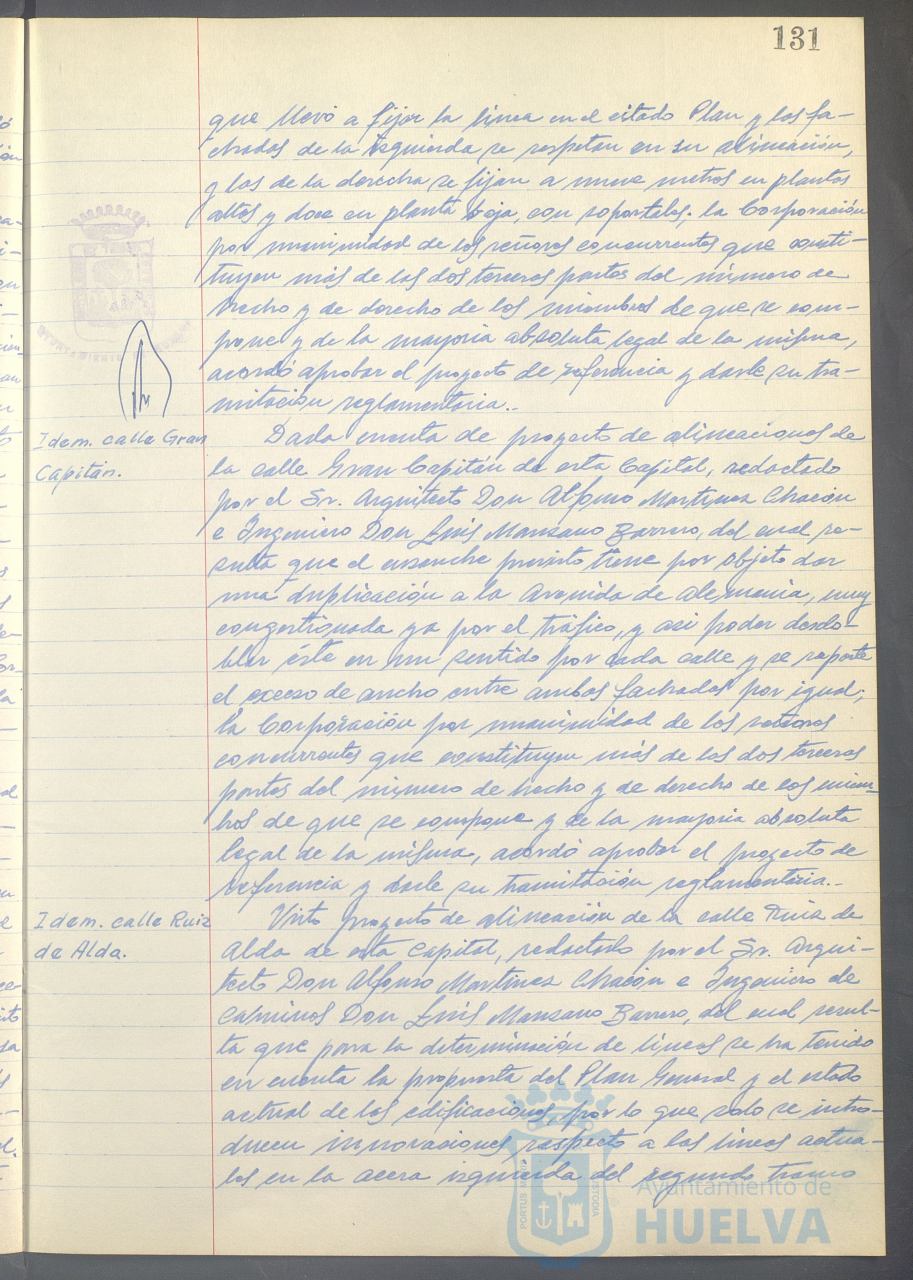 131
que llevó a fijar la línea en el citado Plan y las fa-
chadas de la izquierda se respetan en su alineación,
y las de la derecha se fijan a nueve metros en plantas
altas y doce en planta baja, con soportales. la Corporación
por unanimidad de los señores concurrentes que consti-
tuyen más de las dos terceras partes del número de
hecho y de derecho de los miembros de que se com-
pone y de la mayoria absoluta legal de la misma,
acordó aprobar el proyecto de referencia y darle su tra-
mitación reglamentaria..
Idem. calle Gran
Capitán.
Dada cuenta de proyecto de alineaciones de
la calle Gran Capitán de esta Capital, redactado
por el Sr. Arquitecto Don Alfonso Martinez Chacón
e Ingeniero Don Luis Manzano Barrero, del cual re-
sulta que el ensanche previsto tiene por objeto dar
una duplicación a la Avenida de Alemania, muy
congestionada ya por el tráfico, y asi poder desdo-
blar ésta en un sentido por cada calle y se reparte
el exceso de ancho entre ambas fachadas por igual;
la Corporación por unanimidad de los señores
concurrentes que constituyen más de las dos terceras
partes del número de hecho y de derecho de los miem-
bros de que se compone y de la mayoria absoluta
legal de la misma, acordó aprobar el proyecto de
referencia y darle su tramitación reglamentaria..
Idem. calle Ruiz
de Alda.
Visto proyecto de alineación de la calle Ruiz de
Alda de esta Capital, redactado por el Sr. Arqui-
tecto Don Alfonso Martinez Chacón e Ingeniero de
Caminos Don Luis Manzano Barrero, del cual resul-
ta que para la determinación de líneas se ha tenido
en cuenta la propuesta del Plan General y el estado
actual de las edificaciones, por lo que solo se intro-
ducen innovaciones respecto a las líneas actua-
les en la acera izquierda del segundo tramo
Ayuntamiento de
HUELVA